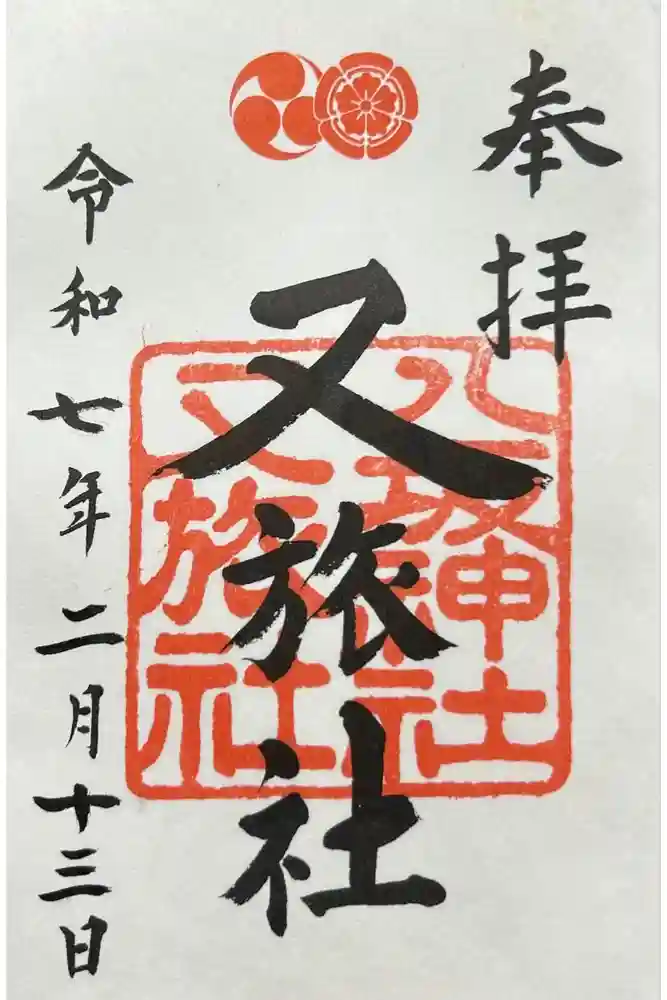 奉拝
又旅社
八坂神社
又旅社
令和七年二月十三日